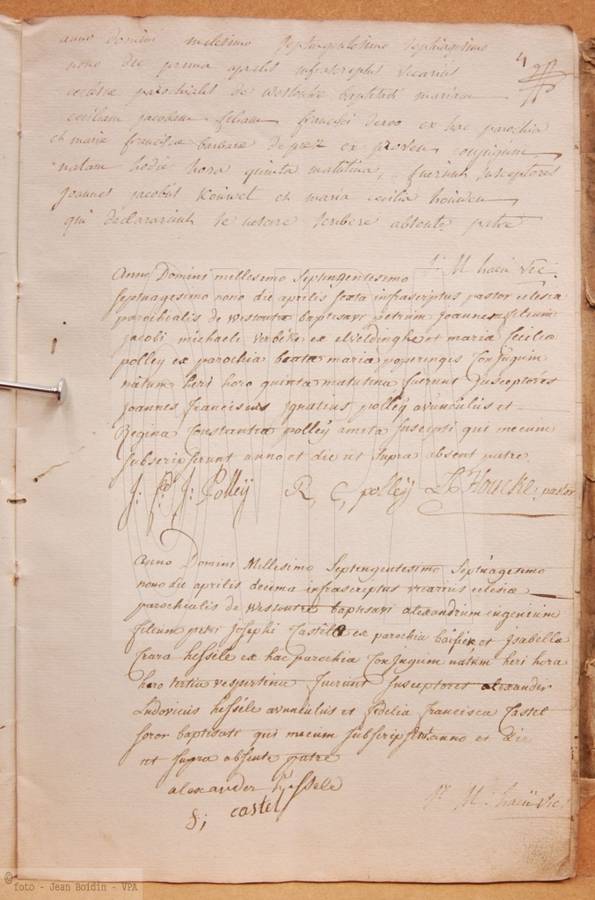 anno domini milesimo septingentesimo septuagesimo
nono die prima aprilis infrascriptus vicarius
ecclesiæ parochialis de Westoutre baptisavi mariam
ceciliam jacobam filiam francisci deroo ex hac parochia
et mariæ franciscæ barbaræ ex proven conjugum
natam hodie hora quinta matutina, fuerunt susceptores
joannes jacobus et maria cecilia
qui declararunt se nescire scribere absente patre
4
Anno Domini millesimo Septingentesimo
Septuagesimo nono die aprilis sexta infrascriptus pastor eclesiæ
parochialis de westoutre baptisavi petrum joannem filium
jacobi michaeli verbeke ex elverdinghe et maria Cecilia
polley ex parochia beata maria poperingis Conjugum
natum heri hora quinta matutina fuerunt Susceptores
joannes franciscus ignatius polley avunculus et
Regina Constantia polley amita suscepti qui mecum
Subscripserunt anno et die ut supra absent patre
j: f: j: Polley R, C, polley pastor
Anno Domini Millesimo Septingentesimo Septuagesimo
nono die aprilis decima infrascriptus vicarius eclesiæ
parochialis de Wesoutre baptisavi alexandrum eugenium
filium petri josephi Castel ex parochia et ysabella
Clara hessele ex hac parochia Conjugum natum heri hora
hora tertia vespertina fuerunt Susceptores alexander
Ludovicus hessele avunculus et fidelia francisca Castel
soror baptisati qui mecum subscripserunt anno et die
ut supra absente patre
alexander hessele
castel
©foto - Jean Boidin - VPA